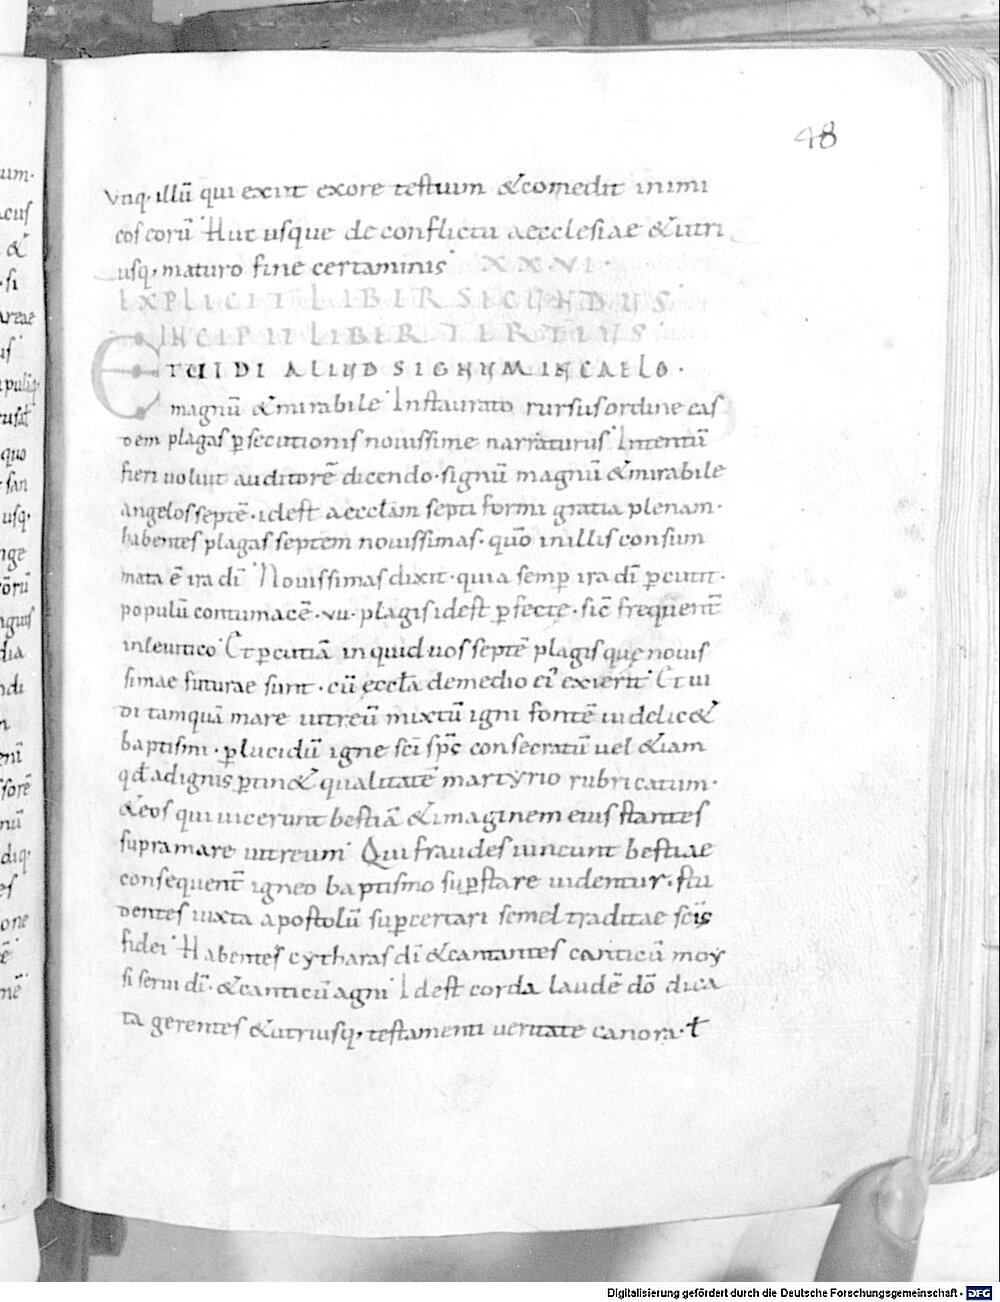 48
Vnq· illū qui exiit exore testium &comedit inimi
cos eorū Huc usque de conflictu aecclesiae &utri
usq; maturo fine certaminis XXVI·
EXPLICIT LIBER SECUNDUS·
INCIPIT LIBER TERTIUS
ET UIDI ALIUD SIGNUM IN CAELO·
magnū &mirabile Instaurato rursus ordine eas
dem plagas p̱secutionis nouissime narraturus Intentū
fieri uoluit auditorē dicendo· signū magnū &mirabile
angelos septē· idest aeccłam septiformi gratia plenam·
habentes plagas septem nouissimas· quō inillis consum
mata ē ira dī Nouissimas dixit· quia semp̱ ira dī p̱cutit·
populū contumacē· vii· plagis idest p̱fecte· sic̄ frequent̄
inleuitico Et p̱cutiā inquid uos septē plagis quę nouis
simae futurae sunt· cū ęccła demedio eī exierit Et ui
di tamquā mare uitreū mixtū igni fontē uidelic&
baptismi· p̱lucidū igne sc̄i sp̄s consecratū uel &iam
qđ adignis p̱tin& qualitatē martyrio rubricatum·
&eos qui uicerunt bestiā &imaginem eius stantes
supra mare uitreum Qui fraudes uincunt bestiae
consequent̄ igneo baptismo sup̱stare uidentur· stu
dentes iuxta apostolū sup̱certari semel traditae sc̄is
fidei Habentes cytharas dī &cantantes canticū moy
si serui dī· &canticū agni Idest corda laudē dō dica
ta gerentes &utriusq; testamenti ueritate canora· ł
Digitalisierung gefördert durch die Deutsche Forschungsgemeinschaft - DFG